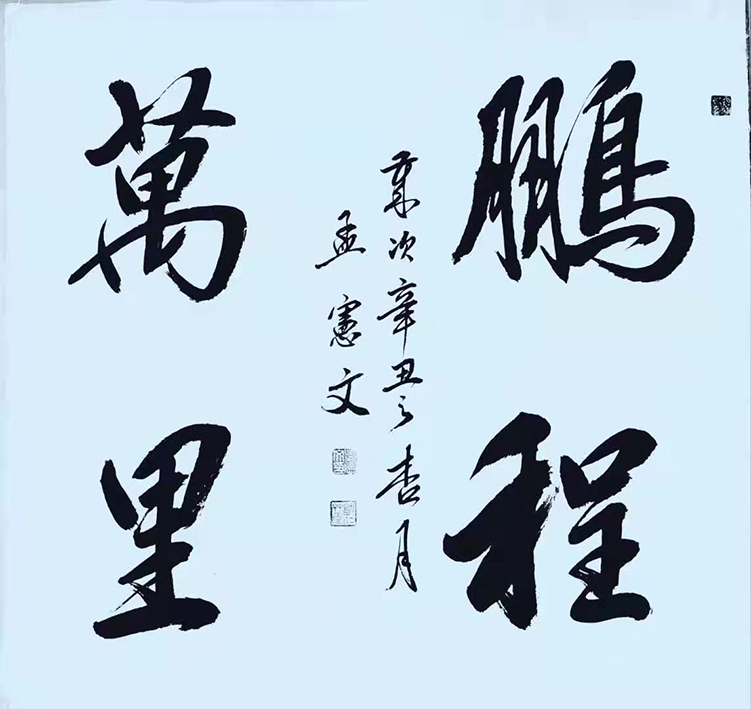 鵬程
萬里
歲次辛丑之杏月
孟憲文